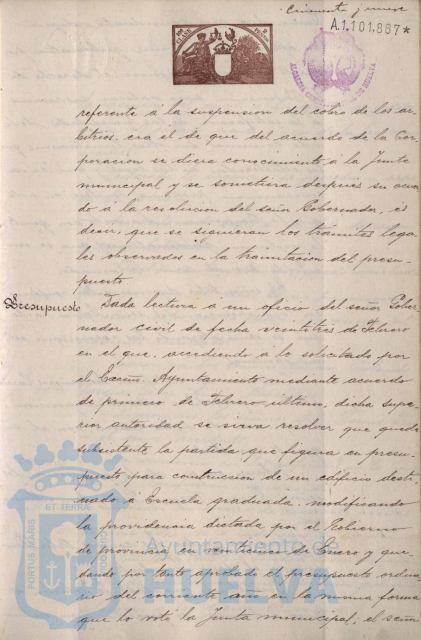 A.1.101.887*
ALCALDIA DE HUELVA
referente á la suspension del cobro de los ar-
bitrios, era el de que del acuerdo de la Cor-
poracion se diera conocimiento á la Junta
municipal y se sometiera despues su acuer-
do á la resolucion del señor Gobernador, es
decir, que se siguieran los trámites lega-
les observados en la tramitacion del presu-
puesto.
Presupuesto
Dada lectura á un oficio del señor Gober-
nador civil de fecha veintitres de Febrero
en el que, accediendo á lo solicitado por
el Excmo. Ayuntamiento mediante acuerdo
de primero de Febrero último, dicha supe-
rior autoridad se sirve resolver que quede
subsistente la partida que figura en presu-
puesto para construccion de un edificio desti-
nado á Escuela graduada, modificando
la providencia dictada por el Gobierno
de provincia en veinticinco de Enero y que-
dando por tanto aprobado el presupuesto ordina-
rio del corriente año en la misma forma
que lo votó la Junta municipal; el señor
PORTUS MARIS ET TERRAE
Ayuntamiento de
HUELVA